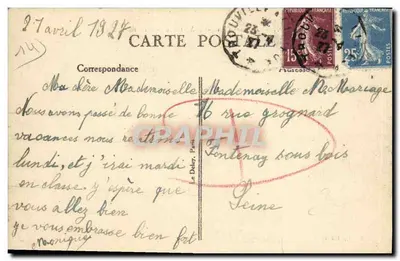 21 avril 1927
(14)
CARTE POSTALE
Correspondance
Ma chère Mademoiselle
Nous avons passé de bonne
vacances nous rentrons
lundi, et j'irai mardi
en classe. j'espère que
vous allez bien
je vous embrasse bien fort
Monique
Mademoiselle Mariage
16 rue grognard
Fontenay sous bois
Seine
TROUVILLE
23-4
27
15
25
POSTES
GRAPHIL
Le Deley, Paris